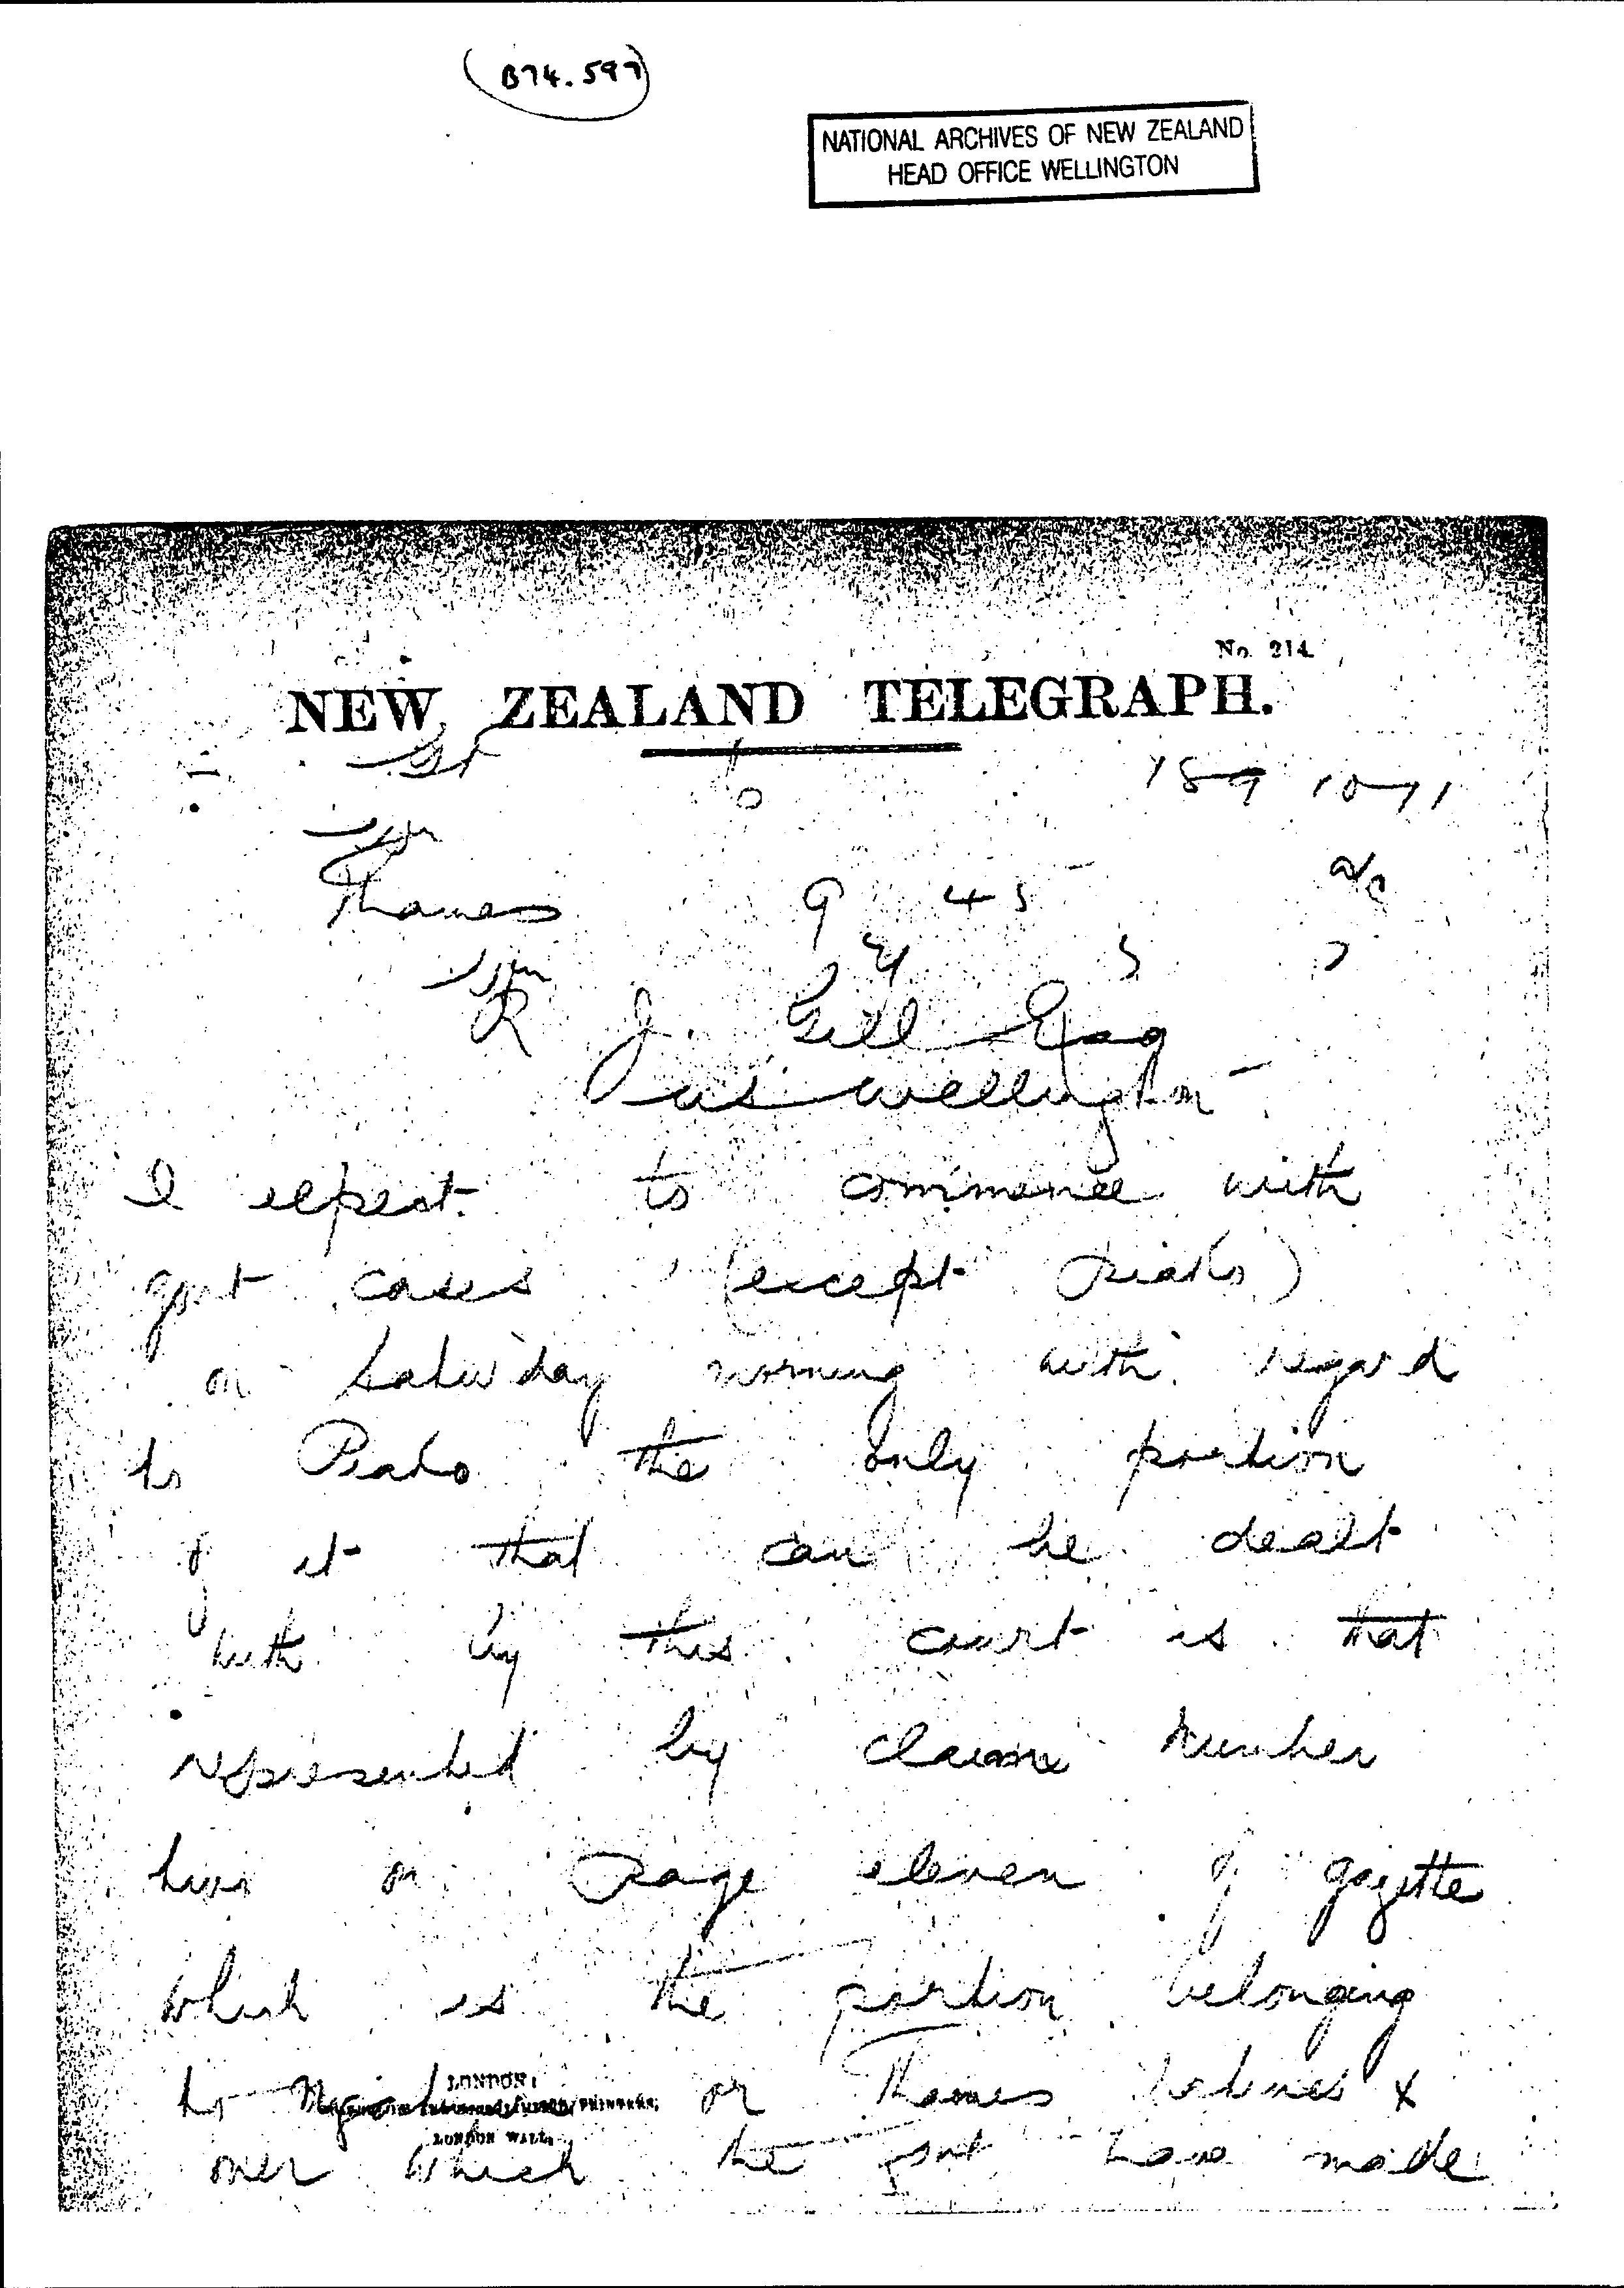 (B74.597)
NATIONAL ARCHIVES OF NEW ZEALAND
HEAD OFFICE WELLINGTON
No. 214.
NEW ZEALAND TELEGRAPH.
Thames 9 45
R J. Gill Esq
Wellington
I expect to commence with
govt cases (except Piako)
on Saturday morning with regard
to Piako the only portion
of it that can be dealt
with by this court is that
represented by claim number
two on Page eleven of gazette
which is the portion belonging
to or Thames natives &
LONDON:
LONDON WALL.
over which the govt have made